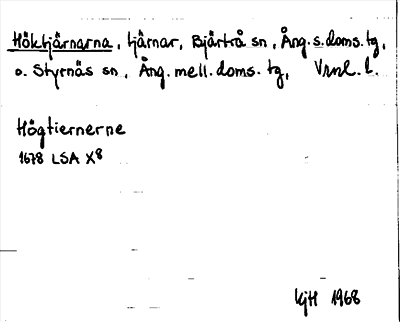 Höktjärnarna, tjärnar, Bjärtrå sn, Ång. s. doms. tg,
o. Styrnäs sn, Ång. mell. doms. tg, Vrnl. l.
Högtiernerne
1678 LSA X8
KjH 1968